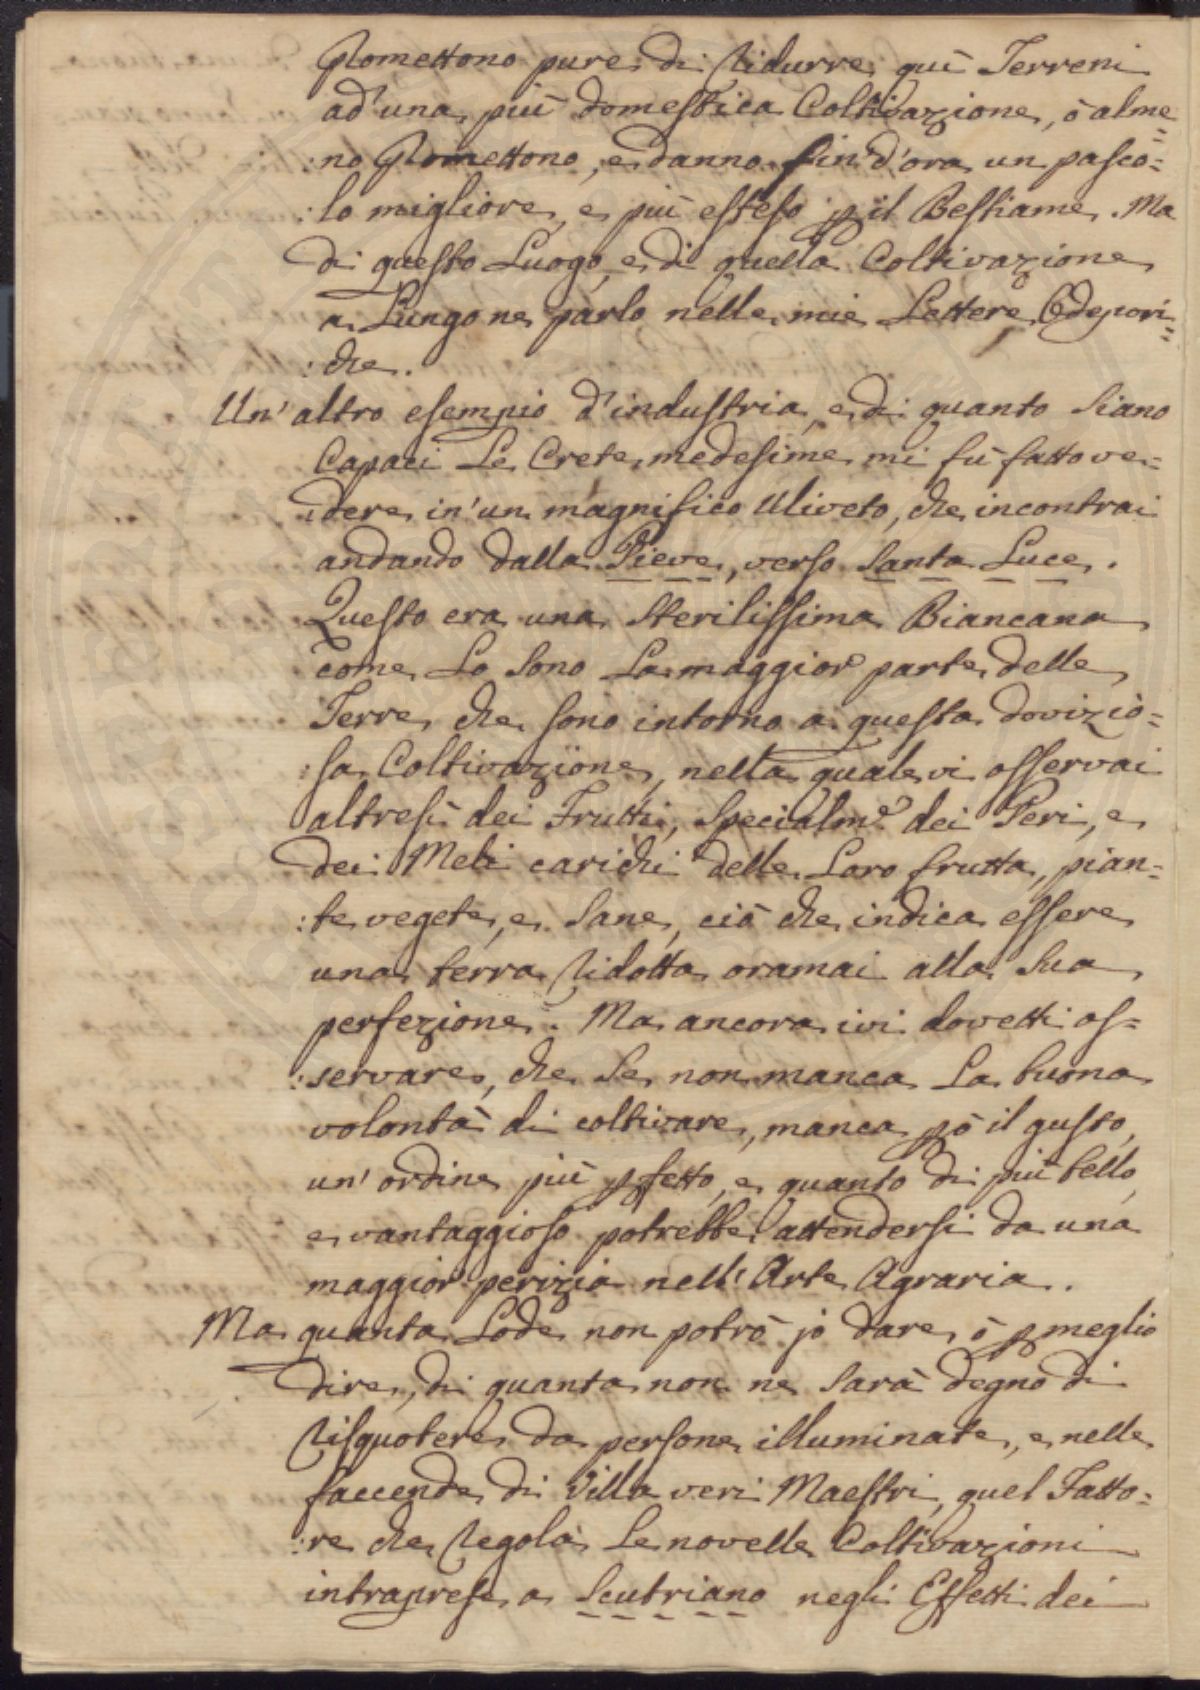 Promettono pure di ridurre quei Terreni
ad' una più domestica Coltivazione, ò alme=
:no Promettono, e danno fin' d'ora un pasco=
:lo migliore, e più esteso p il Bestiame. Ma
di questo Luogo, e di quella Coltivazione
a Lungo ne parlo nelle mie Lettere Odepori=
:che.
Un' altro esempio d'industria, e di quanto siano
Capaci Le Crete medesime mi fù fatto ve=
:dere in' un magnifico Uliveto, che incontrai
andando dalla Pieve, verso Santa Luce.
Questo era una sterilissima Biancana
come Lo sono La maggior parte delle
Terre, che sono intorno a questa dovizio=
:sa Coltivazione, nella quale vi osservai
altresì dei Frutti, specialmᵉ dei Peri, e
dei Meli carichi delle Loro frutta, pian=
:te vegete, e sane, ciò che indica essere
una terra ridotta oramai alla sua
perfezione. Ma ancora ivi dovetti os=
:servare, che se non manca La buona
volontà di coltivare, manca pò il gusto,
un' ordine più pfetto, e quanto di più bello,
e vantaggioso potrebbe attendersi da una
maggior perizia nell' Arte Agraria.
Ma quanta Lode non potrò jo dare, ò p meglio
dire, di quanta non ne sarà degno di
risquotere da persone illuminate, e nelle
faccende di Villa veri Maestri, quel Fatto=
:re che regola Le novelle Coltivazioni
intraprese a Scutriano negli Effetti dei